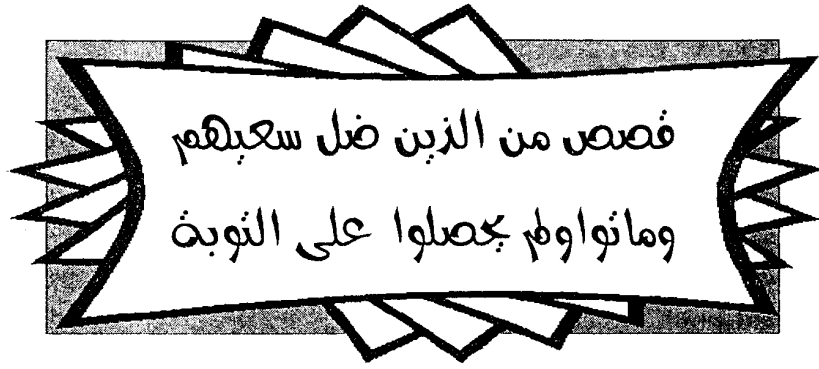 قصص من الذين ضل سعيهم
وماتوا ولم يحصلوا على التوبة